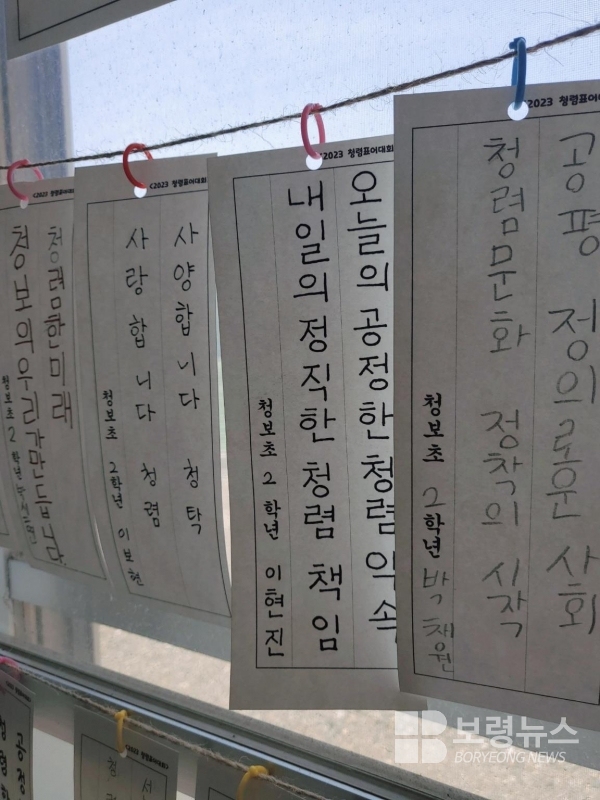 <2023 청렴표어대회
청렴한미래
청보의우리가만듭니다.
청보초 2 학년
<2023 청렴표어대회
사양합니다 청탁
사랑합니다 청렴
청보초 2학년 이보현
<2023 청렴표어대회
오늘의 공정한 청렴 약속
내일의 정직한 청렴 책임
청보초 2 학년 이현진
<2023 청렴표어대
공평 정의로운 사회
청렴문화 정착의 시작
청보초 2학년 박채원
공정
청렴
<2023 청렴표어대회>
보령뉴스
BORYEONG NEWS